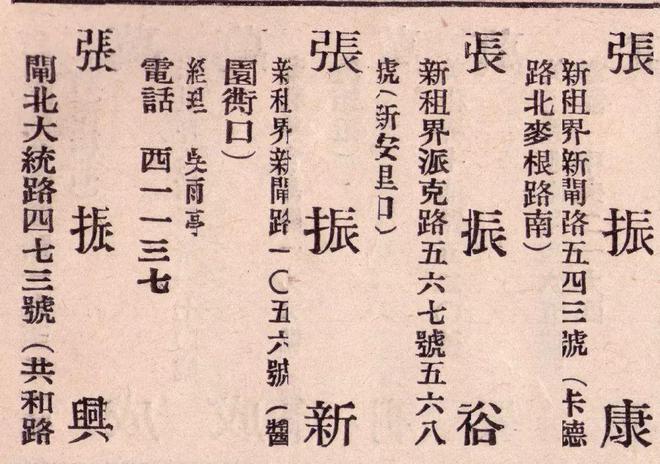 張振康
新租界新閘路五四三號(卡德
路北麥根路南)
張振裕
新租界派克路五六七號五六八
號(新安里口)
張振新
新租界新閘路一〇五六號(醬
園衖口)
經理 吳雨亭
電話 西一一三七
張振興
閘北大統路四七三號(共和路